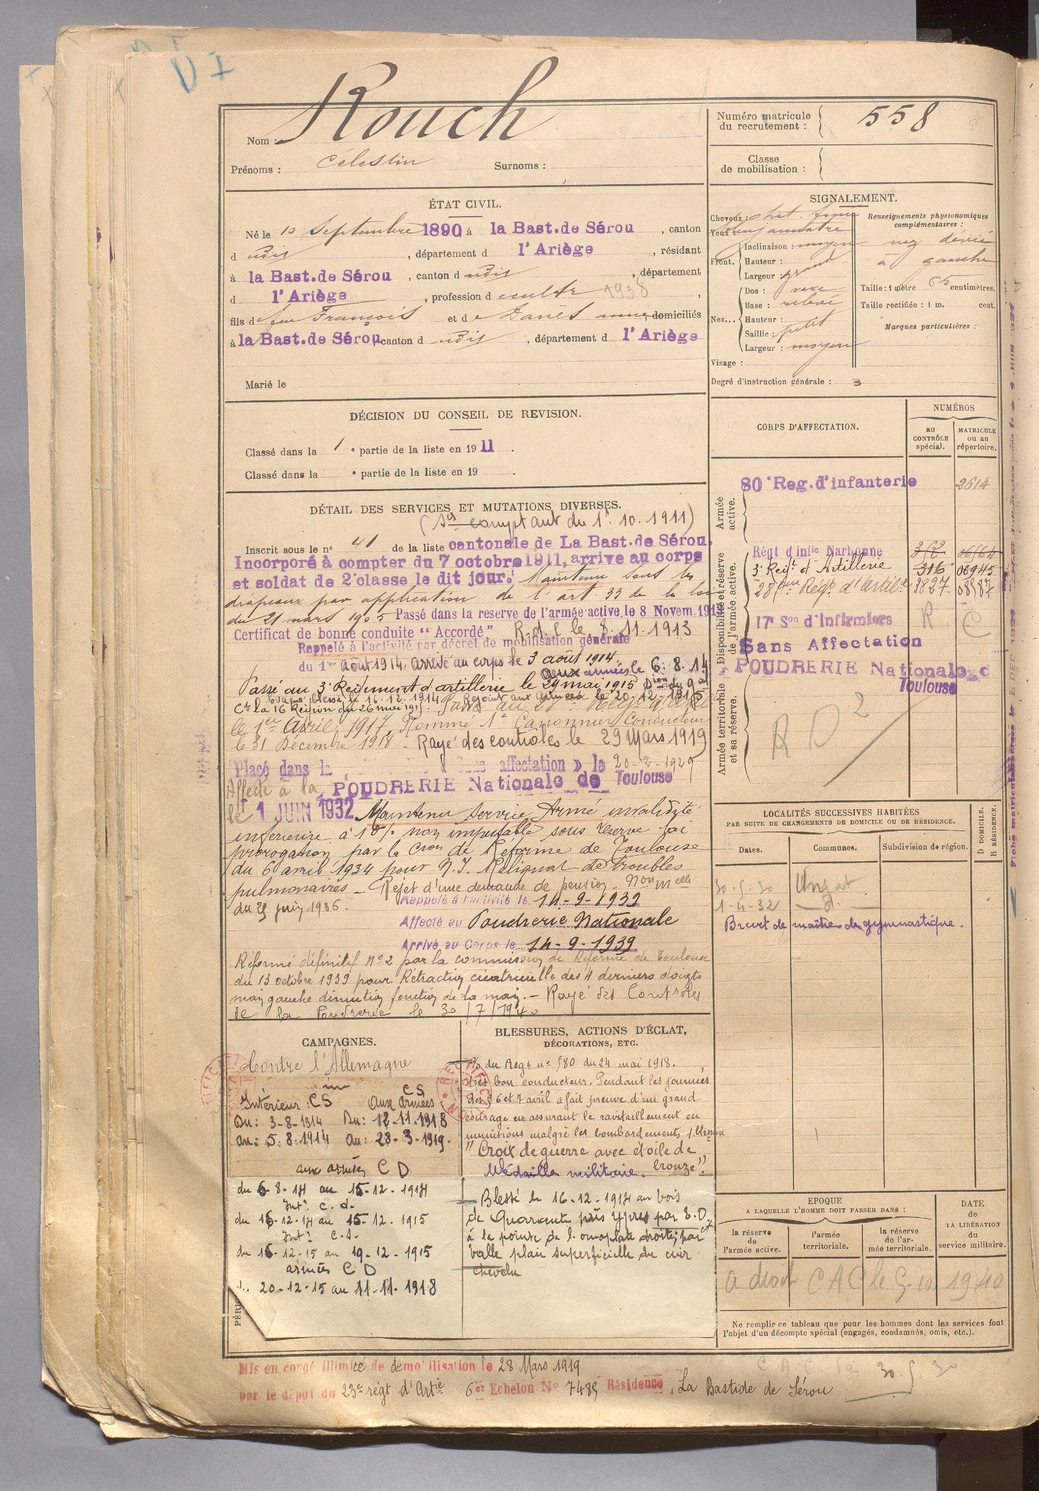 Nom Rouch
Prénoms : Célestin Surnoms :
Numéro matricule du recrutement : 558
Classe de mobilisation :
ÉTAT CIVIL.
Né le 10 Septembre 1890 à la Bast. de Sérou, canton
d udis, département d l'Ariège, résidant
à la Bast. de Sérou, canton d udis, département
d l'Ariège, profession d culte 1938
fils d feu François et d domiciliés
à la Bast. de Sérou canton d udis, département d l'Ariège
Marié le
SIGNALEMENT.
Cheveux : chat. foncé
Yeux
Front. Inclinaison : moyen
Hauteur :
Largeur : grand
Nez... Dos : vexe
Base : relevé
Hauteur :
Saillie : petit
Largeur : moyen
Visage :
Degré d'instruction générale : 3
Renseignements physionomiques complémentaires :
nez dévié
à gauche
Taille : 1 mètre 65 centimètres.
Taille rectifiée : 1 m. cent.
Marques particulières :
DÉCISION DU CONSEIL DE REVISION.
Classé dans la 1e partie de la liste en 1911.
Classé dans la e partie de la liste en 19 .
DÉTAIL DES SERVICES ET MUTATIONS DIVERSES.
(Sce comptant du 1er.10.1911)
Inscrit sous le n° 41 de la liste cantonale de La Bast. de Sérou.
Incorporé à compter du 7 octobre 1911, arrive au corps
et soldat de 2e classe le dit jour. Maintenu sous les
drapeaux par application de l'art 33 de la loi
du 21 mars 1905 Passé dans la reserve de l'armée active, le 8 Novem. 1913
Certificat de bonne conduite "Accordé" R.d.C. le 8.11.1913
Rappelé à l'activité par décret de mobilisation générale
du 1er août 1914. arrivé au corps le 3 août 1914.
aux armées le 6.8.14
Passé au 3e Régiment d'artillerie le 29 mai 1915
Evacué blessé le 16-12-1914 Rejoint aux armées le 20-12-1915
le 1er Avril 1917. Nommé 1er Canonnier Conducteur
le 31 Décembre 1918 - Rayé des controles le 29 Mars 1919
Placé dans la affectation » le 20-2-1929
Affecté à la POUDRERIE Nationale de Toulouse
le 1 JUIN 1932 Maintenu Service Armé invalidité
inférieure à 10% non imputable sous réserve
prorogation par la Cion de Réforme de Toulouse
du 6 avril 1934 pour de troubles
pulmonaires - Rejet d'une demande de pension
du 25 juin 1936.
Rappelé à l'activité le 14-9-1939
Affecté au Poudrerie Nationale
Arrivé au Corps le 14-9-1939
Réformé définitif n°2 par la commission de Réforme de Toulouse
du 13 octobre 1939 pour Rétraction cicatricielle des 4 derniers doigts
main gauche diminution fonction de la main. - Rayé des Controles
de la Poudrerie le 30/7/1940
CORPS D'AFFECTATION.
NUMÉROS
AU CONTRÔLE spécial.
MATRICULE OU AU répertoire.
Armée active.
80e Reg. d'infanterie 2614
Disponibilité et réserve de l'armée active.
Régt d'infie Narbonne
3e Regt d'Artillerie 316 06945
28eme Régt d'artie 3827 08987
17e Son d'Infirmiers R C
Sans Affectation
POUDRERIE Nationale d
Toulouse
Armée territoriale et sa réserve.
RD2
LOCALITÉS SUCCESSIVES HABITÉES
PAR SUITE DE CHANGEMENTS DE DOMICILE OU DE RÉSIDENCE.
Dates. Communes. Subdivision de région. D DOMICILE. R RÉSIDENCE.
30-5-30
1-4-32
Brevet de maître de gymnastique.
CAMPAGNES.
Contre l'Allemagne
Intérieur CS
Du : 3-8-1914
au : 5-8-1914
CS
Aux armées
Du : 12-11-1918
au : 28-3-1919.
aux armées CD
du 6-8-14 au 15-12-1914
Intr C.d.
du 16-12-14 au 15-12-1915
Intr C.S.
du 16-12-15 au 19-12-1915
armées CD
20-12-15 au 11-11-1918
BLESSURES, ACTIONS D'ÉCLAT,
DÉCORATIONS, ETC.
du Régt n° 580 du 24 mai 1918.
très bon conducteur. Pendant les journées
des 6 et 7 avril a fait preuve d'un grand
courage en assurant le ravitaillement en
munitions malgré les bombardements
"Croix de guerre avec étoile de bronze".
Médaille militaire.
Blessé le 16-12-1914 au bois
de Quarante près Ypres par E.O.
à la pointe de l'omoplate droite, par
balle plaie superficielle du cuir
chevelu
ÉPOQUE
A LAQUELLE L'HOMME DOIT PASSER DANS :
la réserve de l'armée active.
l'armée territoriale.
la réserve de l'armée territoriale.
DATE de LA LIBÉRATION du service militaire.
a droit CAC le 5-10 1940
Ne remplir ce tableau que pour les hommes dont les services font
l'objet d'un décompte spécial (engagés, condamnés, omis, etc.).
Mis en congé illimité de démobilisation le 28 Mars 1919
par le dépôt du 23e régt d'Artie 6e Echelon N° 7485 Résidence La Bastide de Sérou